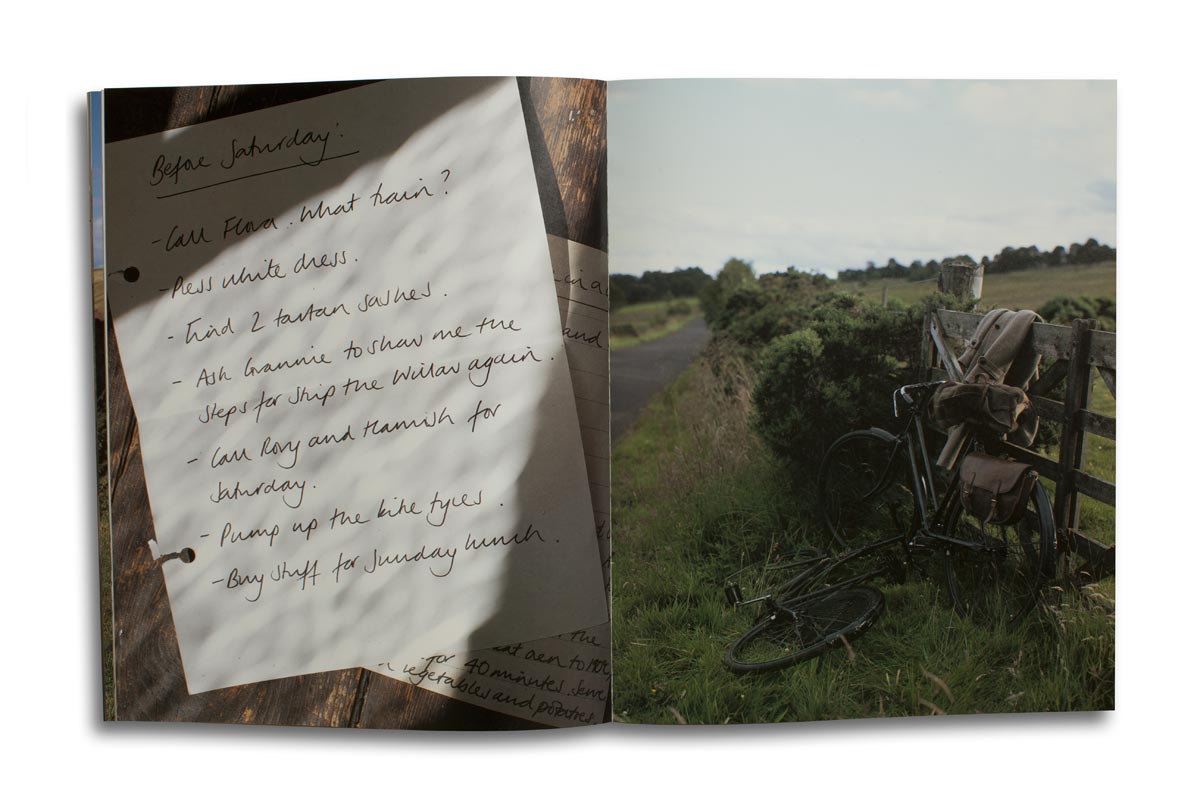 Before Saturday:
- Call Flora. What train?
- Press white dress.
- Find 2 tartan sashes.
- Ask Grannie to show me the
steps for strip the willow again.
- Call Rory and Hamish for
Saturday.
- Pump up the bike tyres.
- Buy stuff for Sunday lunch.
and
the
for 40 minutes. Serve
vegetables and potatoes